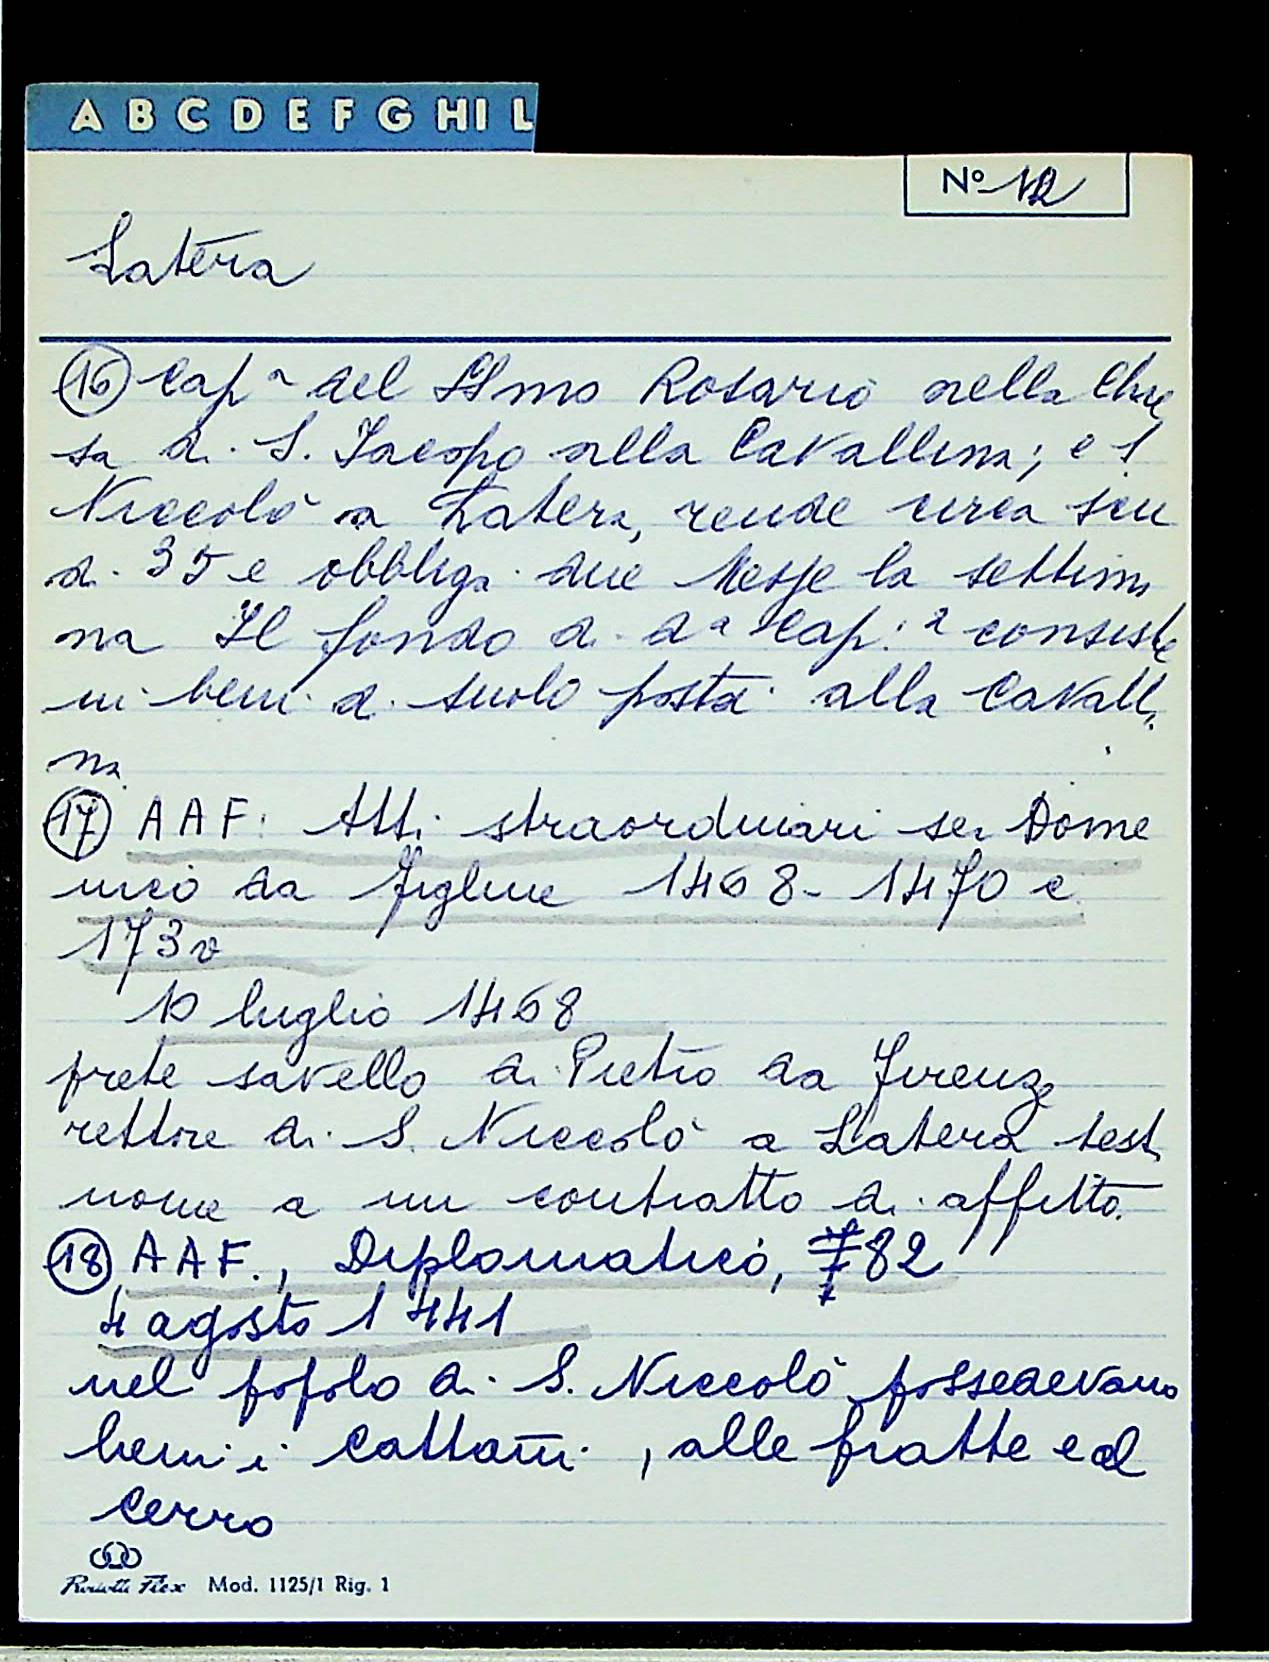 A B C D E F G H I L
N° 12
Latera
16 Cap.a del SSmo Rosario nella Chie
sa di S. Jacopo alla Cavallina; e S
Niccolò a Latera, rende circa scu
di 35 e obbliga due Messe la settima
na Il fondo di da Cap.a consiste
in beni di suolo posti alla Cavalli
na
17 AAF. Atti straordinari ser Dome
nico da Figline 1468-1470 c
173v
10 luglio 1468
prete savello di Pietro da Firenze
rettore di S. Niccolò a Latera testi
mone a un contratto di affitto.
18 AAF., Diplomatico, 82
4 agosto 1441
nel popolo di S. Niccolò possedevano
beni i Cattani, alle fratte e al
cerro
Mod. 1125/1 Rig. 1